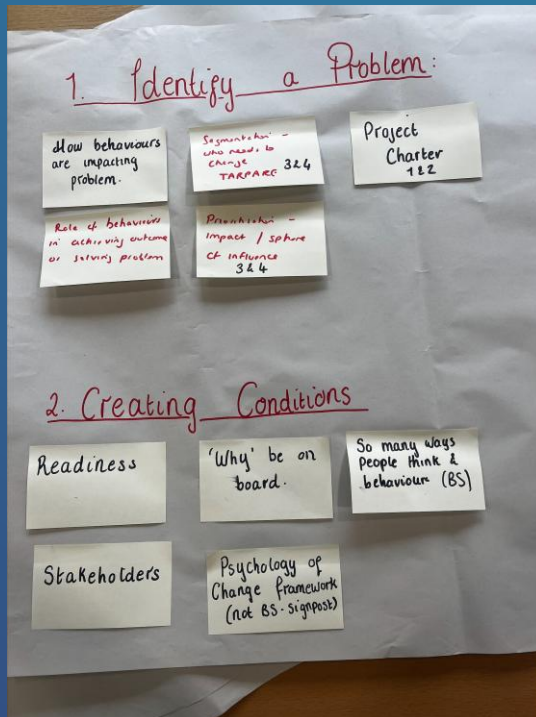 1. Identify a Problem:
How behaviours
are impacting
problem.
Segmentation -
who needs to
change
TARPARE 3&4
Project
Charter
1&2
Role of behaviours
in achieving outcome
or solving problem
Prioritisation -
impact / sphere
of influence
3&4
2. Creating Conditions
Readiness
'Why' be on
board.
So many ways
People think &
behaviour (BS)
Stakeholders
Psychology of
Change framework
(not BS - signpost)